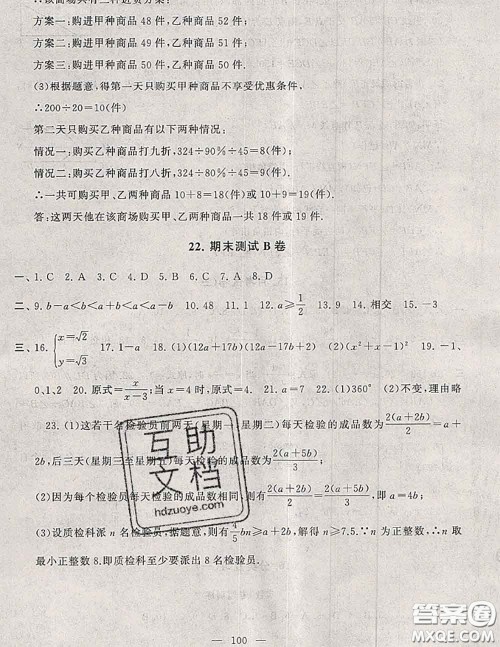 方案一:购进甲种商品 48 件,乙种商品 52 件;
方案二:购进甲种商品 49 件,乙种商品 51 件;
方案三:购进甲种商品 50 件,乙种商品 50 件.
(3)根据题意,得第一天只购买甲种商品不享受优惠条件.
∴200÷20=10(件)
第二天只购买乙种商品有以下两种情况:
情况一:购买乙种商品打九折,324÷90%÷45=8(件);
情况二:购买乙种商品打八折,324÷80%÷45=9(件).
∴一共可购买甲、乙两种商品 10+8=18(件)或 10+9=19(件).
答:这两天他在该商场购买甲、乙两种商品一共 18 件或 19 件.
22. 期末测试 B 卷
一、1. C 2. A 3. C 4. D 5. B 6. D 7. A 8. D
二、9. b-a<b<a+b<a 10. 48 11. 1 12. a≥1/2 13. 9 14. 相交 15. -3
三、16. {x=√2 y=√3 17. 1-a 18. (1)(12a+17b)(12a-17b) (2)(x²+1)² 19. -1、
0、1、2 20. 原式=x/(x-3);当 x=4 时,原式=4. 21. a=7 22. (1)360° (2)不变,理由略
23. (1)这若干名检验员前两天(星期一、星期二)每天检验的成品数为2(a+2b)/2=a+
2b,后三天(星期三至星期五)每天检验的成品数为2(a+5b)/3;
(2)因为每个检验员每天检验的成品数相同,则有2(a+2b)/2=2(a+5b)/3,即 a=4b;
(3)设质检科派 n 名检验员,据题意,则有4/5bn≥a+2b,解得 n≥7.5.∵n 为正整数,∴n 取
最小正整数 8.即质检科至少要派出 8 名检验员.
互助
文档
hdzuoye.com
— 100 —
答案圈
MXQE.COM